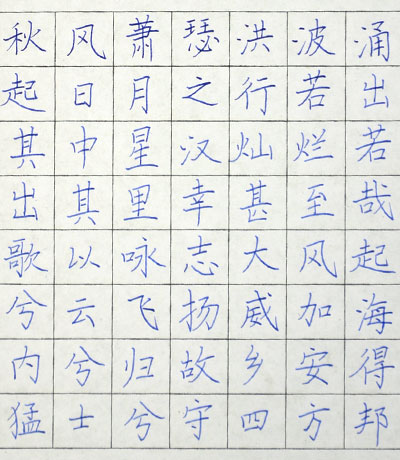 秋风萧瑟洪波涌
起日月之行若出
其中星汉灿烂若
出其里幸甚至哉
歌以咏志大风起
兮云飞扬威加海
内兮归故乡安得
猛士兮守四方邦